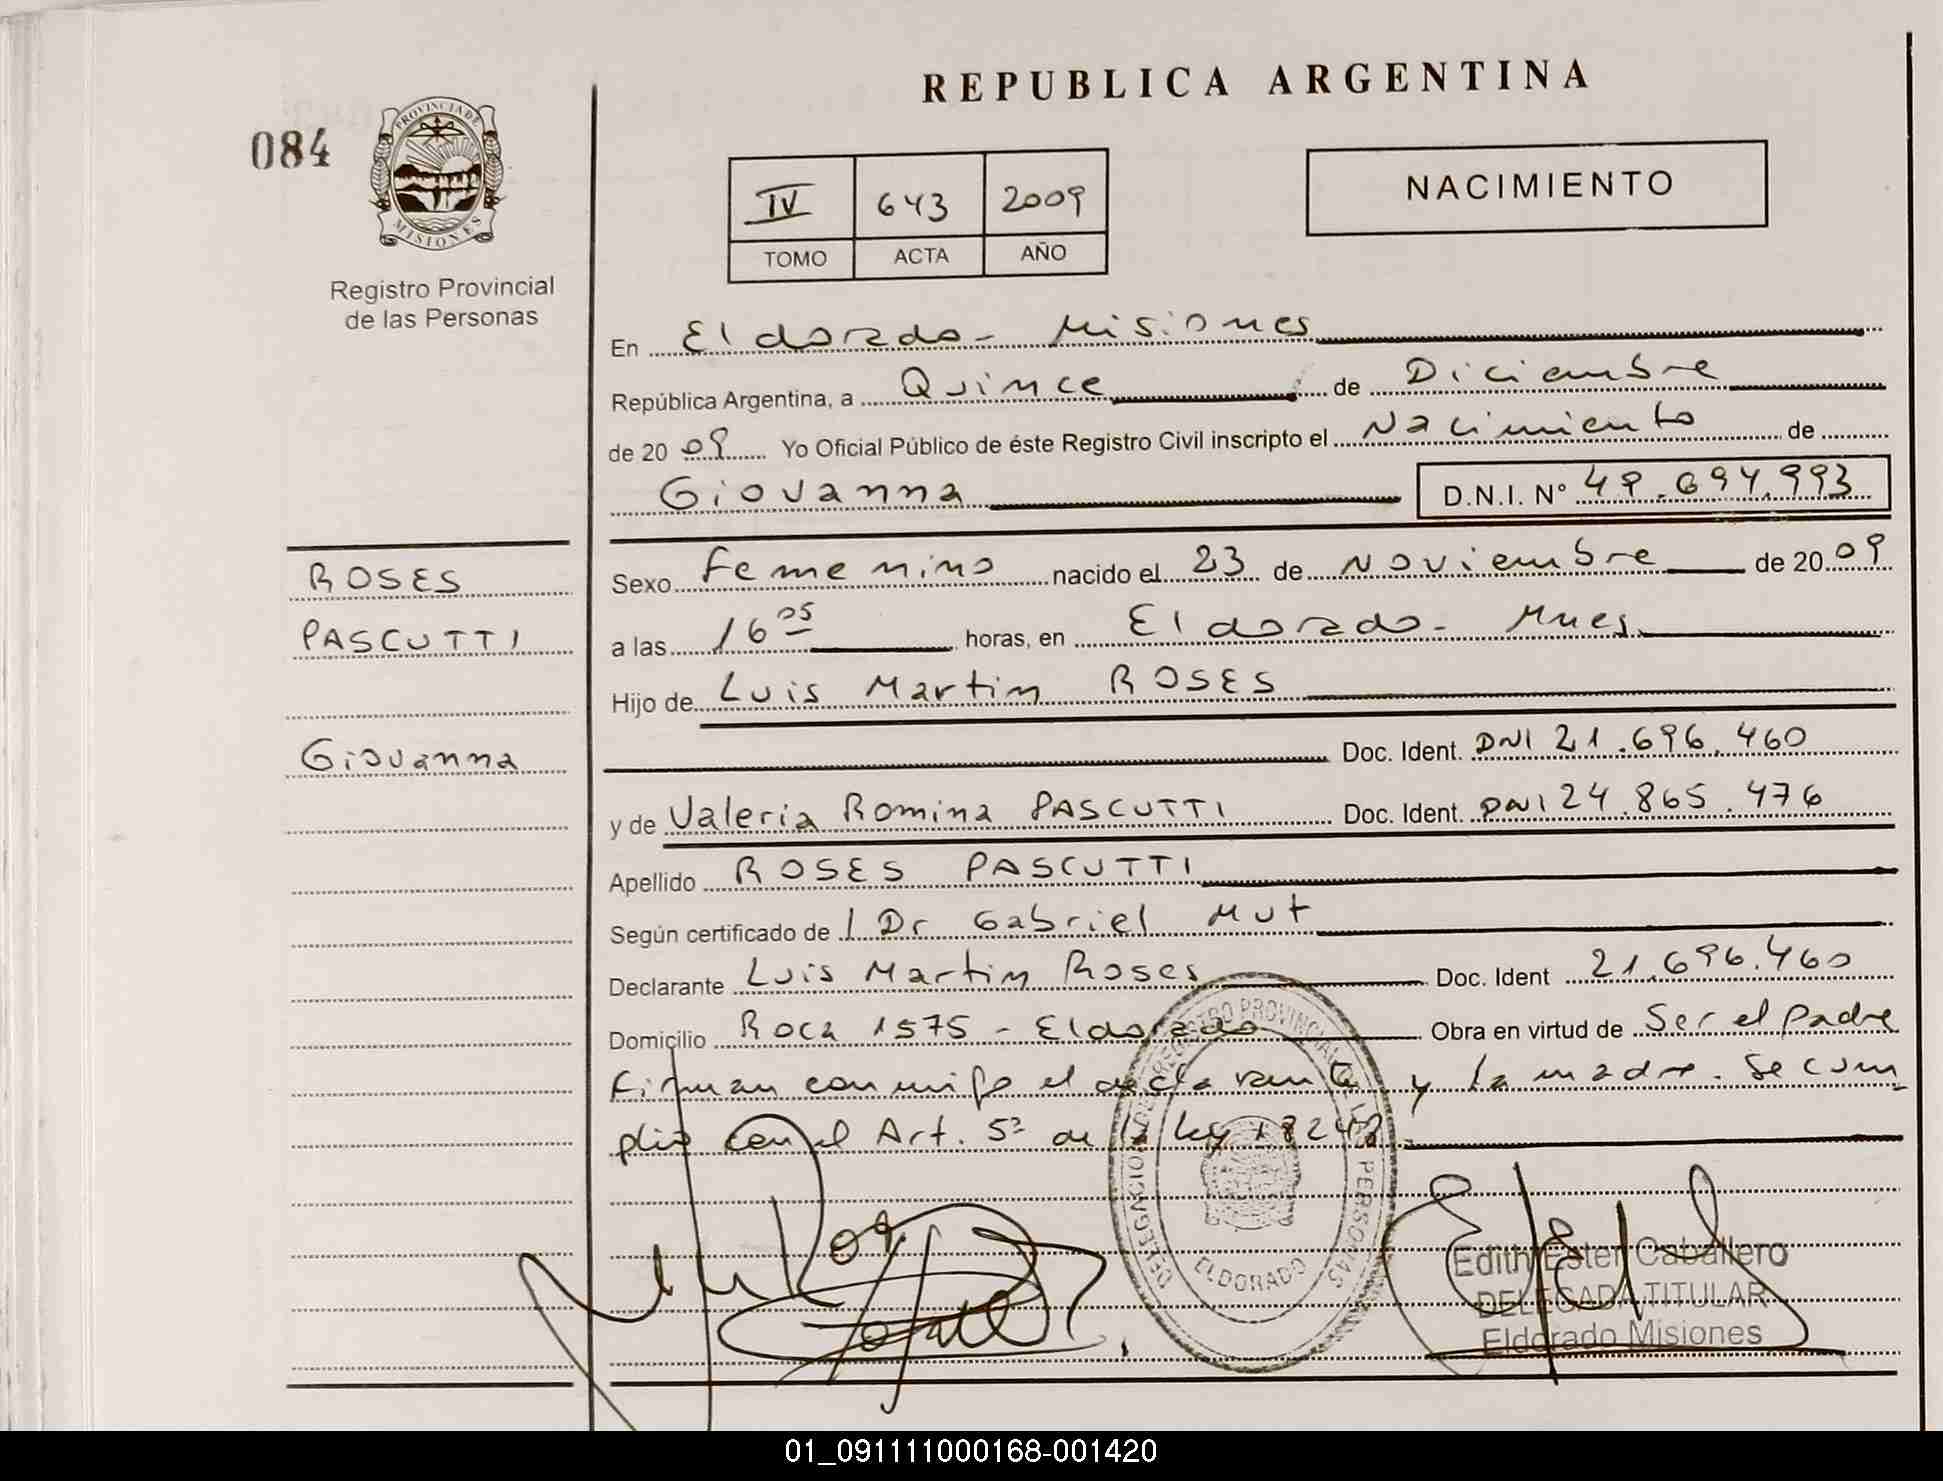 REPUBLICA ARGENTINA
084
PROVINCIA DE
MISIONES
Registro Provincial
de las Personas
IV 643 2009
TOMO ACTA AÑO
NACIMIENTO
En Eldorado - Misiones
República Argentina, a Quince de Diciembre
de 20 09 Yo Oficial Público de éste Registro Civil inscripto el Nacimiento de
Giovanna D.N.I. Nº 49.694.993
ROSES
PASCUTTI
Giovanna
Sexo Femenino nacido el 23 de Noviembre de 20 09
a las 16 05 horas, en Eldorado - Mnes.
Hijo de Luis Martin ROSES
Doc. Ident. DNI 21.696.460
y de Valeria Romina PASCUTTI Doc. Ident. DNI 24.865.476
Apellido ROSES PASCUTTI
Según certificado de Dr Gabriel Mut
Declarante Luis Martin Roses Doc. Ident 21.696.460
Domicilio Roca 1575 - Eldorado Obra en virtud de Ser el padre
Firman conmigo el declarante y la madre. Se cum
plió con el Art. 5º de la Ley 18248.
DELEGACION REGISTRO PROVINCIAL DE LAS PERSONAS
ELDORADO
Edith Ester Caballero
DELEGADA TITULAR
Eldorado Misiones
01_091111000168-001420